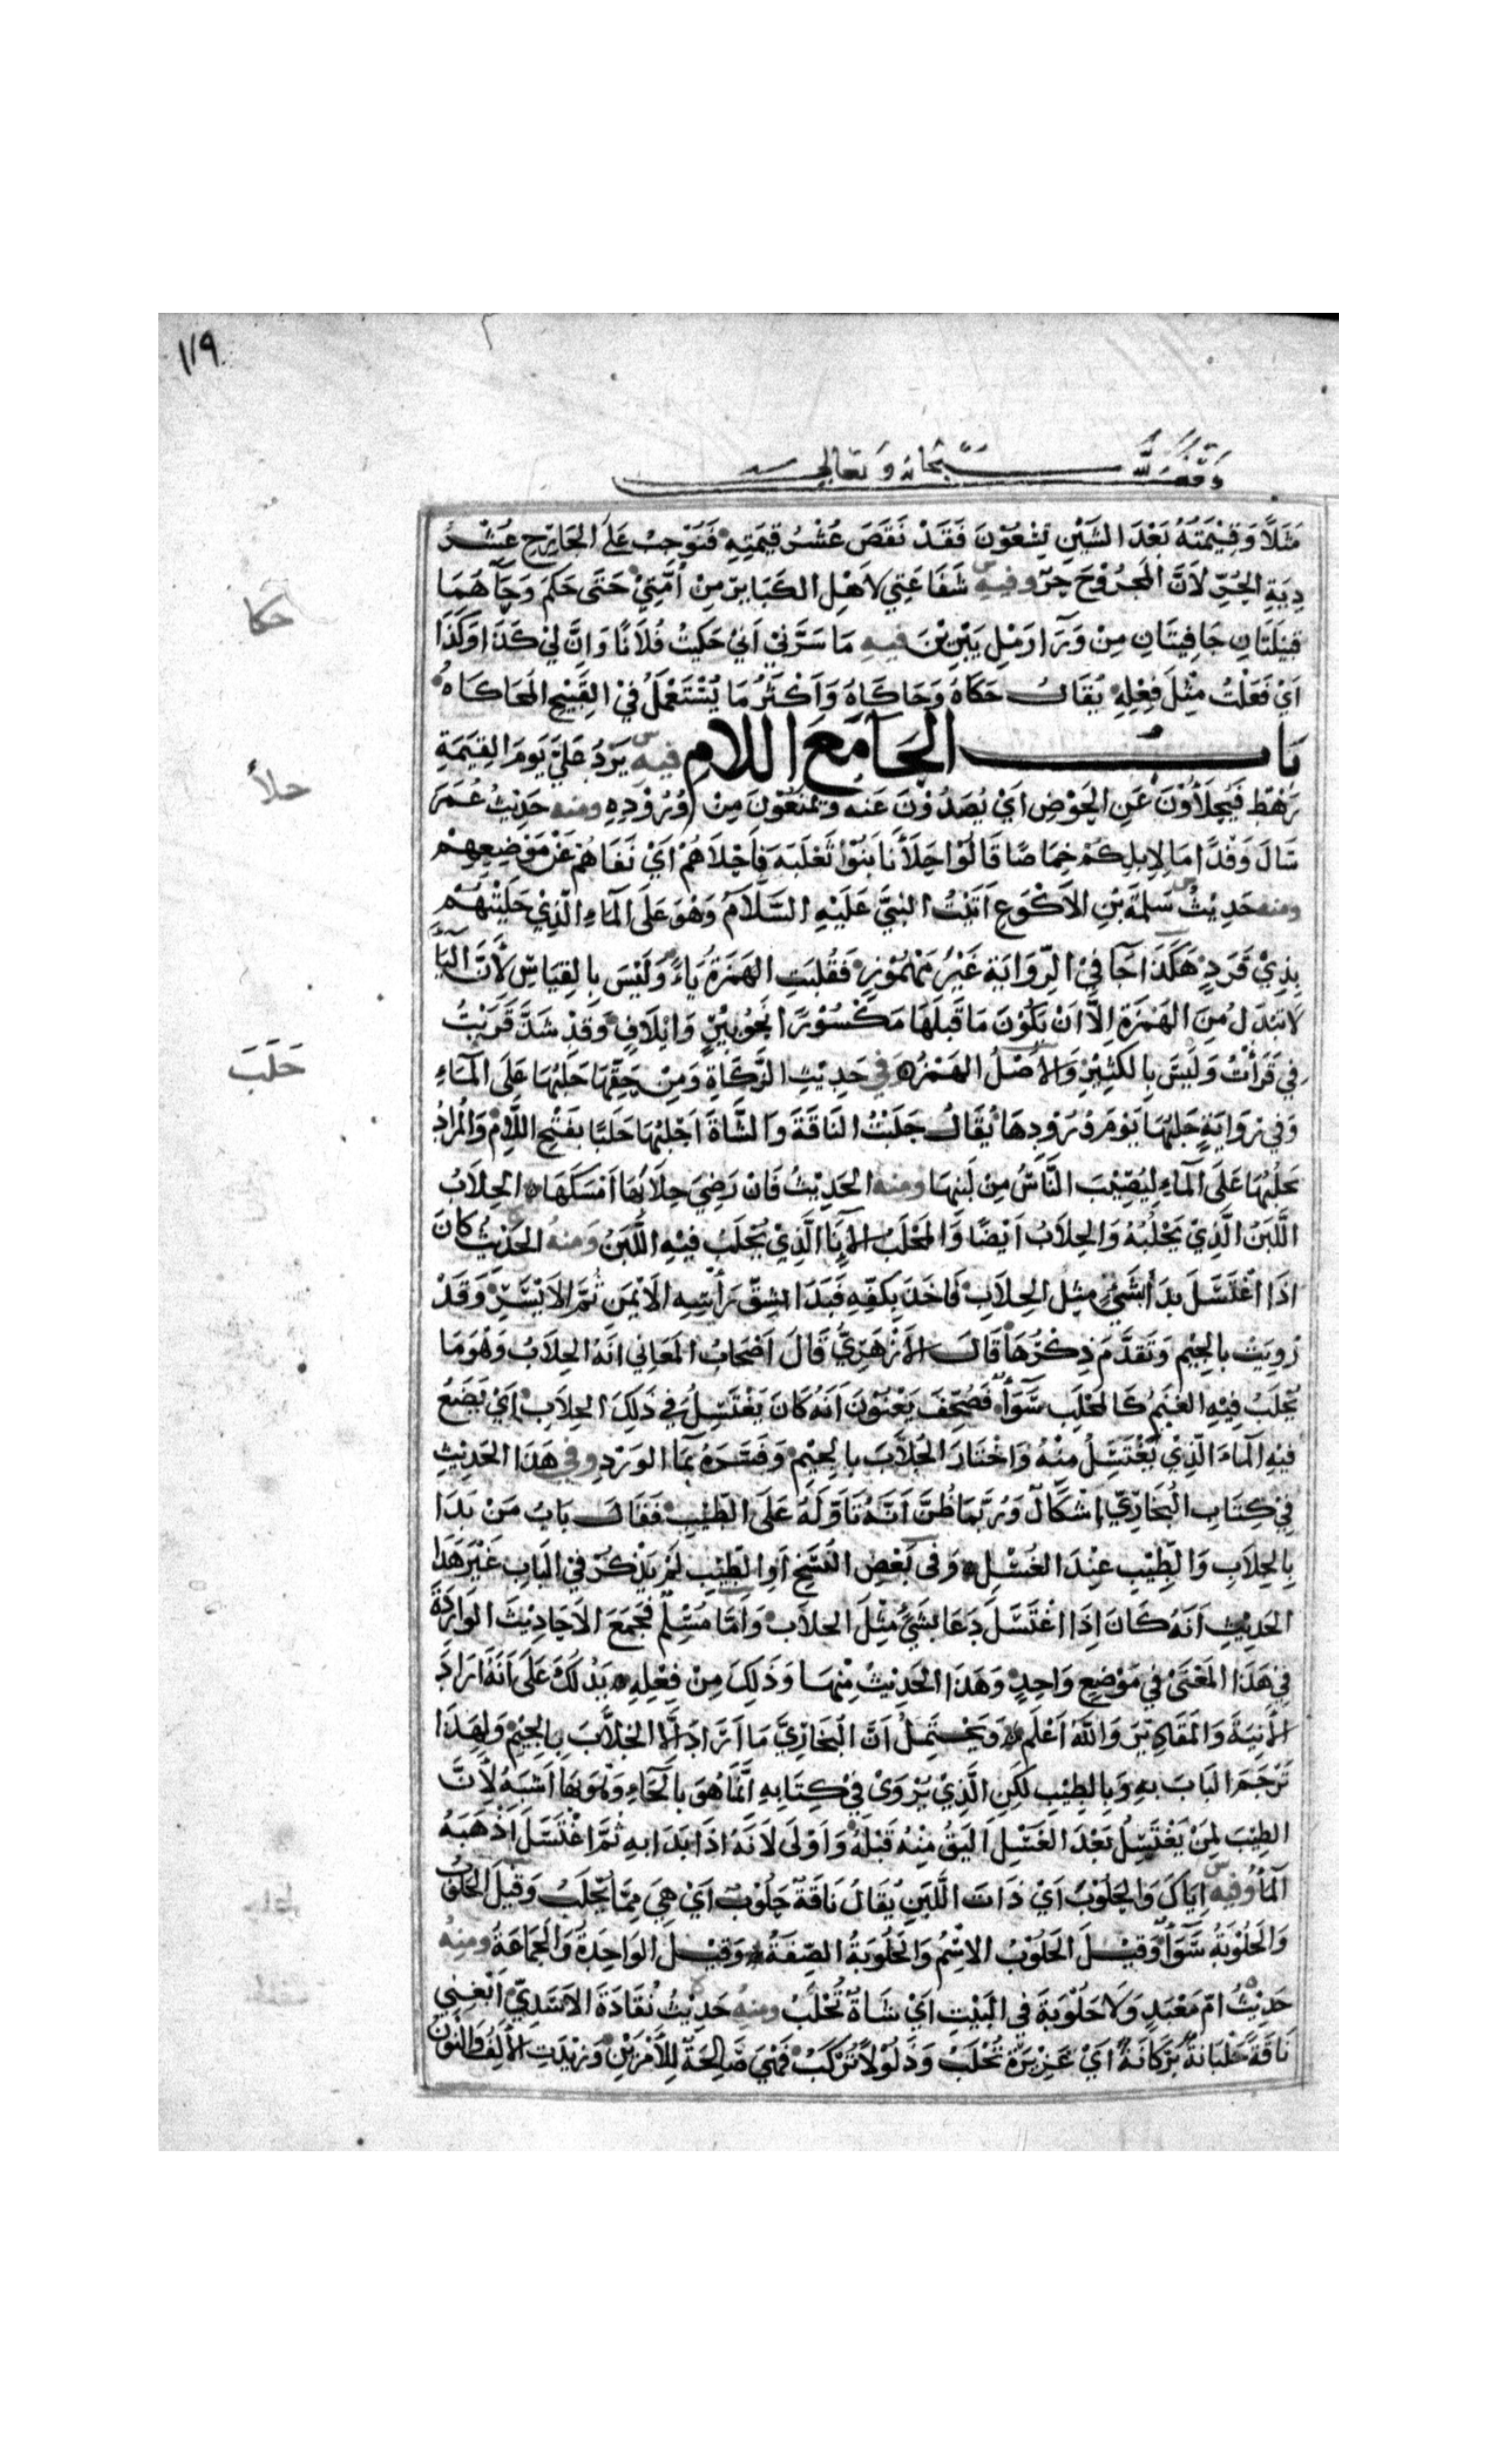 ١١٩
وقف لله سبحانه وتعالى
مَثَلًا وَقِيْمَتُهُ بَعْدَ الشَّيْنِ تِسْعُوْنَ فَقَدْ نَقَصَ عُشْرُ قِيمَتِهِ فَنُوْجِبُ عَلَى الجَارِحِ عُشْرَ
دِيَةِ الحُرِّ لاَنَّ المَجْرُوْحَ حُرّ وفيه س شَفَاعَتِي لاَهْلِ الكَبَائِرِ مِنْ اُمَّتِيْ حَتَّى حَكَمَ وَحَآ هُمَا
قَبِيلَتَانِ جَافِيتَانِ مِنْ وَرَآ رَمْلِ يَبْرِيْنَ فيه مَا سَرَّنِيْ اَنِّيْ حَكَيْتُ فُلَانًا وَاَنَّ لِيْ كَذَا وَكَذَا
اَيْ فَعَلْتُ مِثْلَ فِعْلِهِ يُقَالُ حَكَاهُ وَحَاكَاهُ وَاَكْثَرُ مَا يُسْتَعْمَلُ فِيْ القَبِيْحِ المُحَاكَاهُ
حكا
بَابُ الحَآ مَعَ اللَّامِ فيه س يَرِدُ عَلَيَّ يَومَ القِيَمَةِ
حلأ
رَهْطٌ فَيُحَلَّأُوْنَ عَنِ الحَوْضِ اَيْ يُصَدُّوْنَ عَنه وَيُمْنَعُوْنَ مِنْ وُرُوْدِهِ ومنه حَدِيْثُ عُمَرَ
سَالَ وَفْدًا مَا لِاِبِلِكُمْ خِمَاصًا قَالُوْا حَلَّأَنَا بَنُوْا ثَعْلَبَةَ فَاَجْلَاهُمْ اَيْ نَفَاهُمْ عَنْ مَوْضِعِهِمْ
ومنه حَدِيْثُ س سَلَمَةَ بْنِ الاَكْوَعِ اَتَيْتُ النَّبِيَّ عَلَيْهِ السَّلَامُ وَهُوَ عَلَى المَاءِ الَّذِيْ حَلَّيْتُهُمْ
بِذِيْ قَرَدٍ هَكَذَا جَآ فِيْ الرِّوَايَةِ غَيْرُ مَهْمُوْزٍ فَقُلِبَتِ الهَمْزَةُ يَاءً وَلَيْسَ بِالقِيَاسِ لأَنَّ اليَآءَ
لاَ تُبْدَلُ مِنَ الهَمْزَةِ اِلَّا اَنْ يَكُوْنَ مَا قَبلَهَا مَكْسُوْرًا نَحْوُ بِيْرٍ وَاِيْلَافٍ وَقَدْ شَذَّ قَرَيْتُ
فِي قَرَأْتُ وَلَيسَ بِالكَثِيْرِ وَالاَصْلُ الهَمْزُ ه في حَدِيْثِ الزَّكَاةِ وَمِنْ حَقِّهَا حَلَبُهَا عَلَى المَاءِ
حَلَبَ
وَفِي رِوَايَةٍ حَلَبُهَا يَوْمَ وُرُوْدِهَا يُقَالُ حَلَبْتُ النَّاقَةَ وَالشَّاةَ اَحْلُبُهَا حَلَبًا بِفَتْحِ اللَّامِ وَالمُرَادُ
يَحْلُبُهَا عَلَى المَآءِ لِيُصِيْبَ النَّاسُ مِنْ لَبَنِهَا ومنه الحَدِيْثُ فَاِنْ رَضِيَ حِلَابَهَا اَمْسَكَهَا ه الحِلَابُ
اللَّبَنُ الَّذِيْ يَحْلُبُهُ وَالحِلَابُ اَيْضًا وَالمِحْلَبُ الاِنَآ الَّذِيْ يُحْلَبُ فِيْهِ اللَّبَنُ وَمنهُ الحَدِيْثُ كَانَ
اِذَا اغْتَسَلَ بَدَأَ بِشَيْءٍ مِثْلِ الحِلَابِ فَاَخَذَ بِكَفِّهِ فَبَدَا بِشِقِّ رَأْسِهِ الاَيْمَنِ ثُمَّ الاَيْسَرِ وَقَدْ
رُوِيَتْ بِالجِيْمِ وَتَقَدَّمَ ذِكْرُهَا قَالَ الاَزْهَرِيُّ قَالَ اَصْحَابُ المَعَانِي اَنَّهُ الحِلَابُ وَهُوَ مَا
تُحْلَبُ فِيْهِ الغَنَمُ كَالمِحْلَبِ سَوَآءً فَصُحِّفَ يَعْنُوْنَ اَنَّهُ كَانَ يَغْتَسِلُ فِي ذَلِكَ الحِلَابِ اَيْ يَضَعُ
فِيْهِ المَاءَ الَّذِيْ يَغْتَسِلُ مِنْهُ وَاخْتَارَ الجُلَّابَ بِالجِيْمِ وَفَسَّرَهُ بِمَا الوَرْدِ وفي هَذَا الحَدِيْثِ
فِيْ كِتَابِ البُخَارِيّ اِشْكَالٌ وَرُبَّمَا ظُنَّ اَنَّهُ تَاَوَّلَهُ عَلَى الطِّيْبِ فَقَالَ بَابُ مَنْ بَدَا
بِالحِلَابِ وَالطِّيْبِ عِنْدَ الغُسْلِ ه وَفي بَعْضِ النُّسَخِ اَوِ الطِّيْبِ لَمْ يَذْكُرْ فِيْ البَابِ غَيْرَ هَذَا
الحَدِيْثِ اَنَّهُ كَانَ اِذَا اغْتَسَلَ دَعَا بِشَيْءٍ مِثْلَ الحِلَابِ وَاَمَّا مُسْلِمٌ فَجَمَعَ الاَحَادِيْثَ الوَارِدَةَ
فِيْ هَذَا المَعْنَى فِيْ مَوْضِعٍ وَاحِدٍ وَهَذَا الحَدِيْثُ مِنْهَا وَذَلِكَ مِنْ فِعْلِهِ ه يَدُلُّكَ عَلَى اَنَّهُ اَرَادَ
الآنِيَةَ وَالمَقَادِيْرَ وَاللهُ اَعْلَم ه وَيَحْتَمِلُ اَنَّ البُخَارِيَّ مَا اَرَادَ اِلَّا الجُلَّابَ بِالجِيْمِ وَلِهَذَا
تَرْجَمَ البَابَ بِهِ وَبِالطِيْبِ لَكِنِ الَّذِيْ يُرْوَى فِيْ كِتَابِهِ اَنَّمَا هُوَ بِالحَاءِ وَهُوَ بِهَا اَشْبَهُ لأَنَّ
الطِّيْبَ لِمَنْ يَغْتَسِلُ بَعْدَ الغُسْلِ اَلْيَقُ مِنْهُ قَبْلَهُ وَاَوْلَى لاَنَّهُ اِذَا بَدَا بِهِ ثُمَّ اغْتَسَلَ اَذْهَبَهُ
المَآءُ وفيه س اِيَّاكَ وَالحَلُوْبَ اَيْ ذَاتَ اللَّبَنِ يُقَالُ نَاقَةٌ حَلُوْبٌ اَيْ هِيَ مِمَّا يُحْلَبُ وَقِيْلَ الحَلُوْبُ
وَالحَلُوْبَةُ سَوَآءٌ وَقِيْلَ الحَلُوْبُ الاِسْمُ وَالحَلُوْبَةُ الصِّفَةُ ه وَقِيْلَ الوَاحِدَةُ وَالجَمَاعَةُ ومنهُ
حَدِيْثُ ه اُمِّ مَعْبَدٍ وَلَا حَلُوْبَةَ فِي البَيْتِ اَيْ شَاةٌ تُحْلَبُ ومنهُ حَدِيْثُ نُقَادَةَ الاَسَدِيِّ اَبْغِنِي
نَاقَةً حَلْبَانَةً رَكْبَانَةً اَيْ غَزِيْرَةً تُحْلَبُ وَذَلُوْلاً تُرْكَبُ فَهِيَ صَالِحَةٌ لِلأَمْرَيْنِ وَزِيْدَتِ الأَلِفُ وَالنُّوْنُ